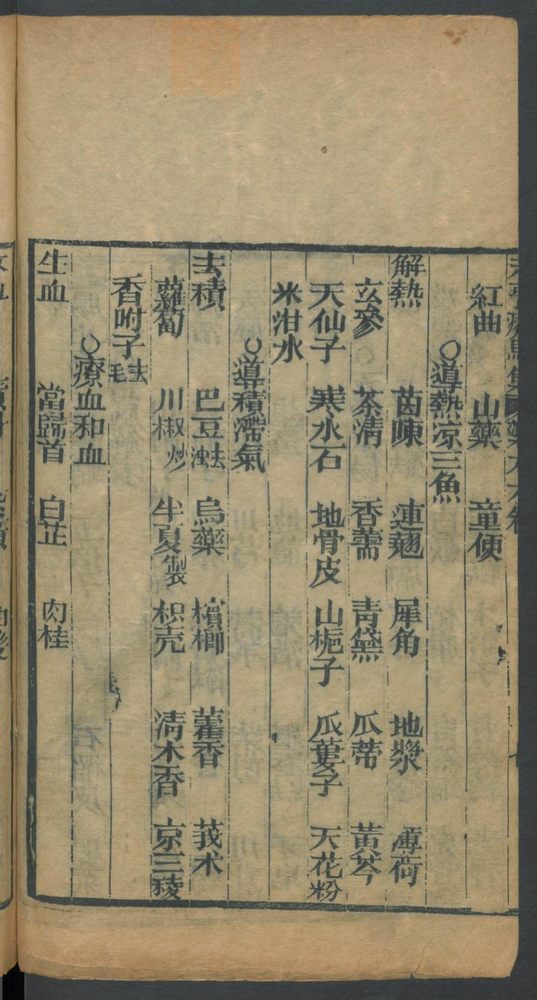 紅曲 山藥 童便
〇導熱凉三魚
解熱 茵蔯 連翹 犀角 地漿 薄荷
玄參 茶清 香薷 青黛 瓜蒂 黃芩
天仙子 寒水石 地骨皮 山梔子 瓜蔞子 天花粉
米泔水
〇導積滯氣
去積 巴豆去油 烏藥 檳榔 藿香 莪朮
蘿蔔 川椒炒 半夏製 枳壳 清木香 京三稜
香附子去毛
〇療血和血
生血 當歸首 白芷 肉桂